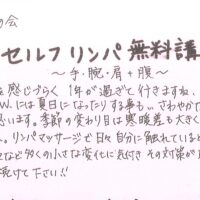 の会
セルフリンパ 無料講
〜手・腕・肩+腹〜
感じづらく 1年が過ぎて行きますね
W.には夏日になったりする事も、さわやかで
思います。季節の変わり目は寒暖差も大きく
。リンパマッサージで日々自分に触れていると
など多くの小さな変化に気付き その対策が
続けて下さい!!